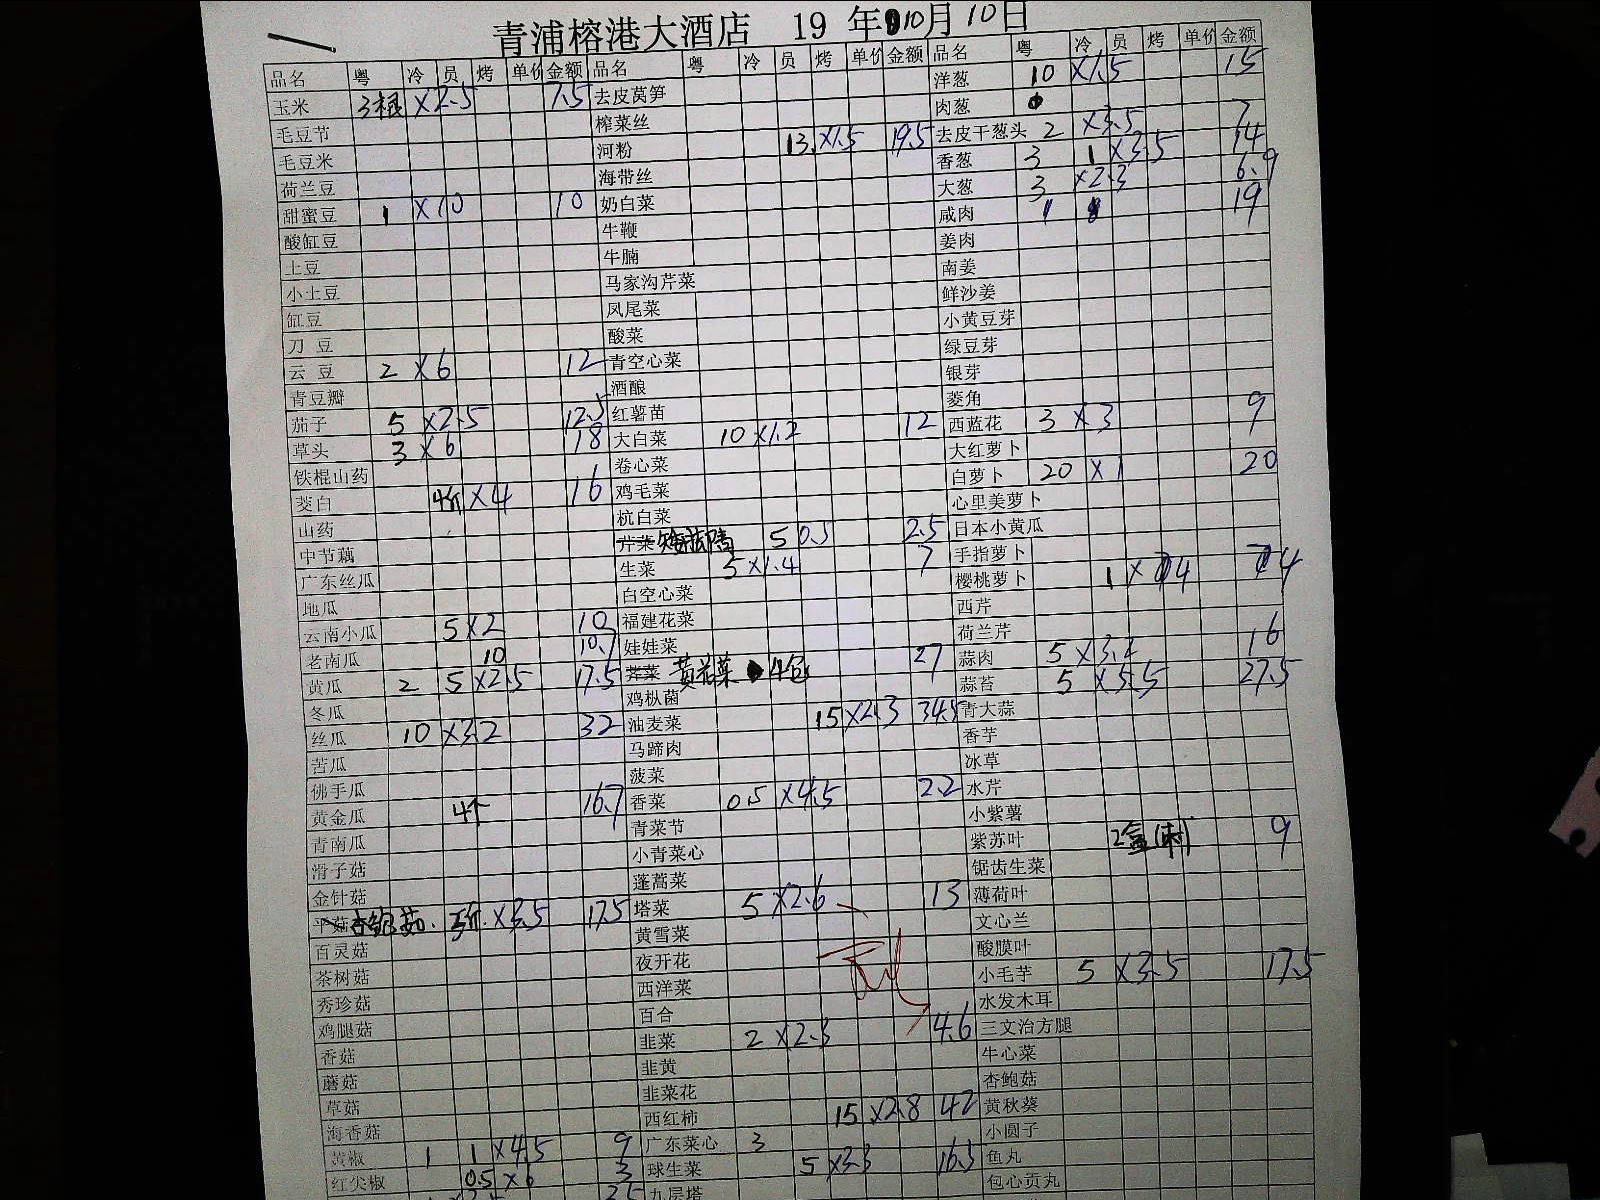 青浦榕港大酒店 19 年 10月 10日
品名 粤 冷 员 烤 单价 金额 品名 粤 冷 员 烤 单价 金额 品名 粤 冷 员 烤 单价 金额
玉米 3根 ×2.5 7.5 去皮莴笋 洋葱 10 ×1.5 15
毛豆节 榨菜丝 肉葱
毛豆米 河粉 13 ×1.5 19.5 去皮干葱头 2 ×3.5 7
荷兰豆 海带丝 香葱 3 1 ×3.5 14
甜蜜豆 1 ×10 10 奶白菜 大葱 3 ×2.3 6.9
酸缸豆 牛鞭 咸肉 1 19
土豆 牛腩 姜肉
小土豆 马家沟芹菜 南姜
缸豆 凤尾菜 鲜沙姜
刀 豆 酸菜 小黄豆芽
云 豆 2 ×6 12 青空心菜 绿豆芽
青豆瓣 酒酿 银芽
茄子 5 ×2.5 12.5 红薯苗 菱角
草头 3 ×6 18 大白菜 10 ×1.2 12 西蓝花 3 ×3 9
铁棍山药 卷心菜 大红萝卜
茭白 4斤 ×4 16 鸡毛菜 白萝卜 20 ×1 20
山药 杭白菜 心里美萝卜
中节藕 芹菜 5 0.5 2.5 日本小黄瓜
广东丝瓜 生菜 5 ×1.4 7 手指萝卜
地瓜 白空心菜 樱桃萝卜 1 ×14 14
云南小瓜 5 ×2 10 福建花菜 西芹
老南瓜 10 10.7 娃娃菜 荷兰芹
黄瓜 2 5 ×2.5 17.5 荠菜 黄花菜 4包 27 蒜肉 5 ×3.2 16
冬瓜 鸡枞菌 蒜苔 5 ×5.5 27.5
丝瓜 10 ×3.2 32 油麦菜 15 ×2.3 34.5 青大蒜
苦瓜 马蹄肉 香芋
佛手瓜 菠菜 冰草
黄金瓜 4个 16.7 香菜 0.5 ×4.5 2.2 水芹
青南瓜 青菜节 小紫薯
滑子菇 小青菜心 紫苏叶 2盒 9
金针菇 蓬蒿菜 锯齿生菜
平菇 杏鲍菇 5斤 ×3.5 17.5 塔菜 5 ×2.6 13 薄荷叶
百灵菇 黄雪菜 文心兰
茶树菇 夜开花 酸膜叶
秀珍菇 西洋菜 小毛芋 5 ×3.5 17.5
鸡腿菇 百合 水发木耳
香菇 韭菜 2 ×2.3 4.6 三文治方腿
蘑菇 韭黄 牛心菜
草菇 韭菜花 杏鲍菇
海香菇 西红柿 15 ×2.8 42 黄秋葵
黄椒 1 1 ×4.5 9 广东菜心 3 小圆子
红尖椒 0.5 ×6 3 球生菜 5 ×3.3 16.5 鱼丸
九层塔 包心贡丸